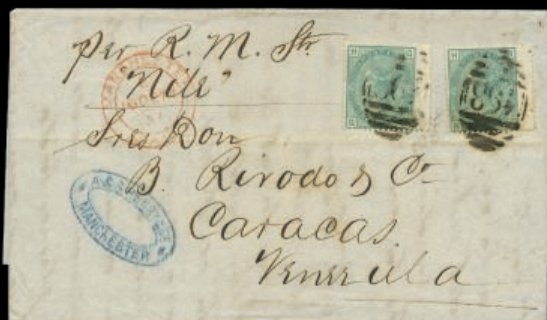 per R. M. Str.
"Nile"
Sres Don
B. Rivodo & Co
Caracas.
Venezuela
MANCHESTER
MANCHESTER